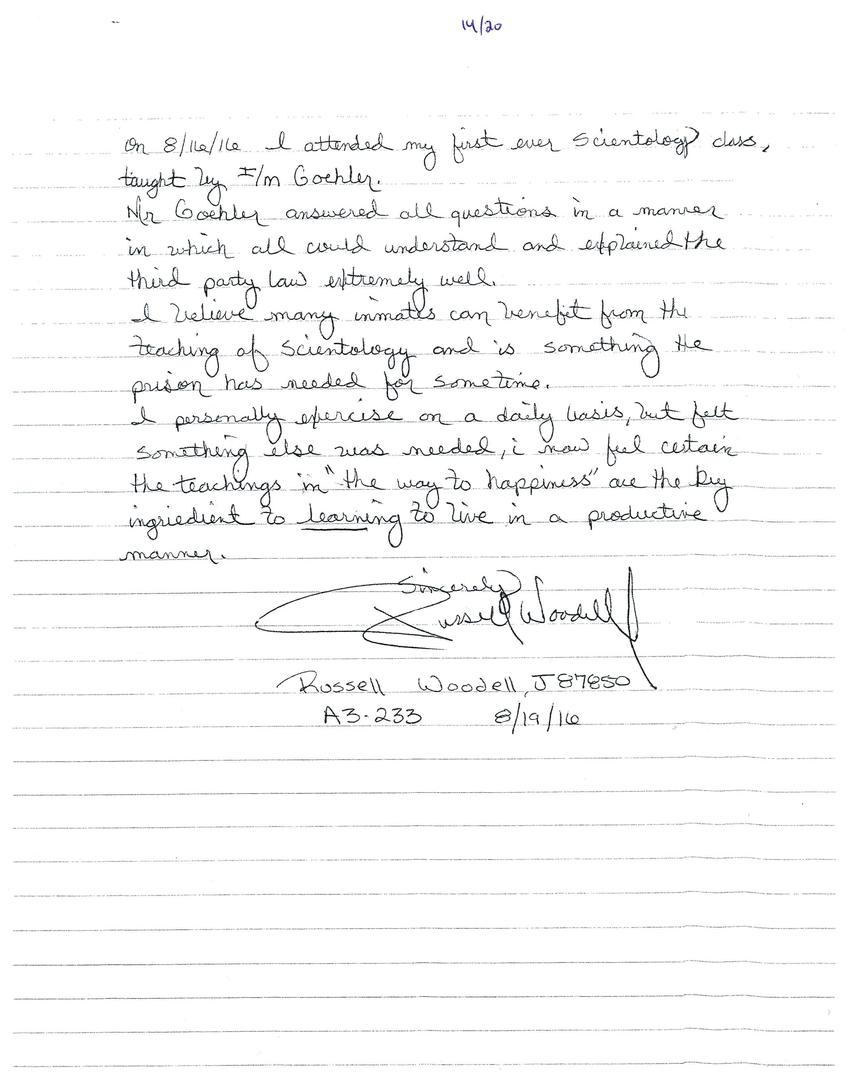 14/20
On 8/16/16 I attended my first ever Scientology class,
taught by I/m Goehler.
Mr Goehler answered all questions in a manner
in which all could understand and explained the
third party law extremely well.
I believe many inmates can benefit from the
teaching of Scientology and is something the
prison has needed for sometime.
I personally exercise on a daily basis, but felt
something else was needed, i now feel certain
the teachings in "the way to happiness" are the key
ingriedient to learning to live in a productive
manner.
Sincerely
Russell Woodell
Russell Woodell, J87850
A3-233 8/19/16